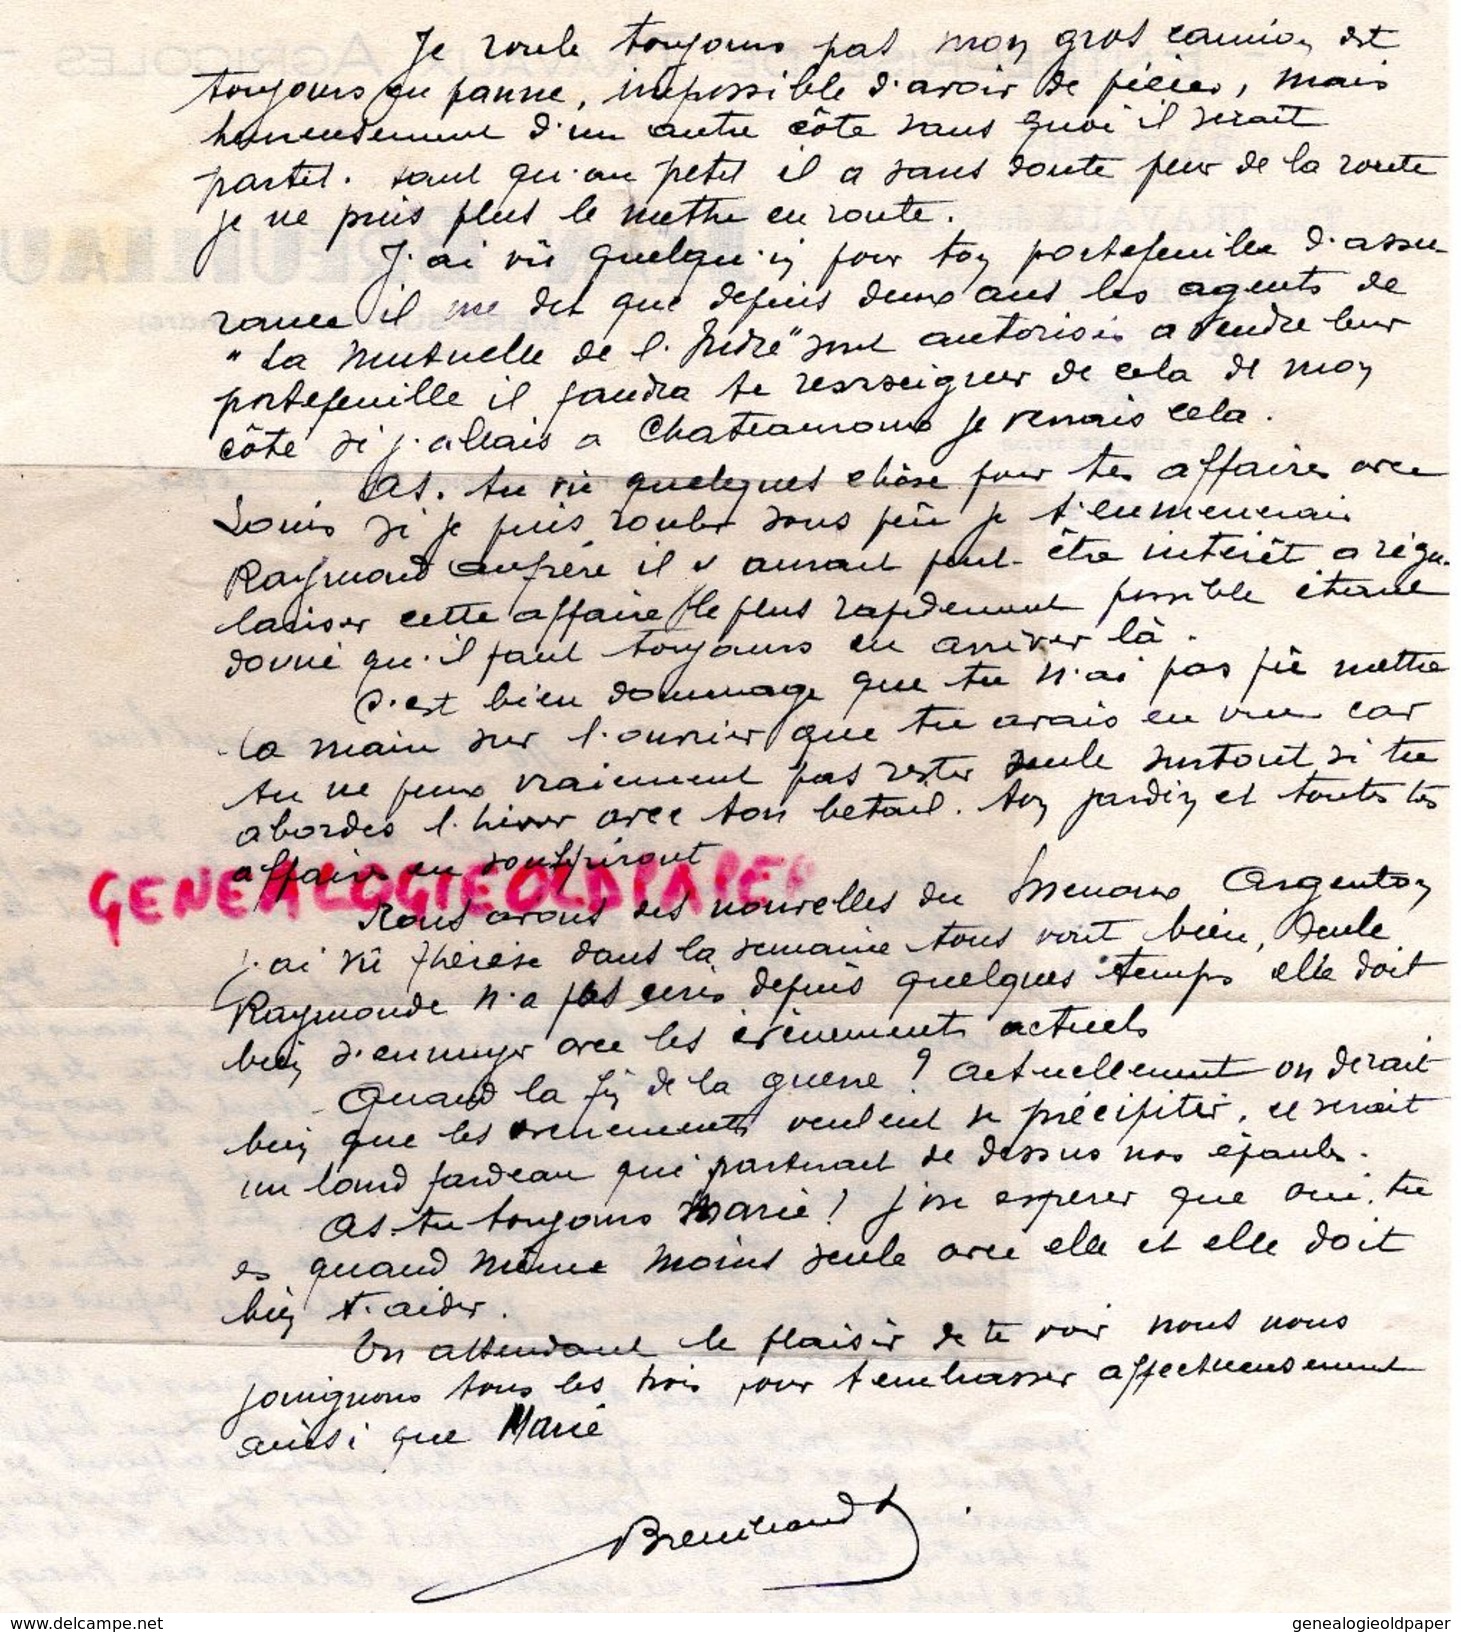 Je roule toujours pas mon gros camion est
toujours en panne, impossible d'avoir de pièces, mais
heureusement d'un autre côte sans quoi il serait
partit. tant qu'au petit il a sans doute peur de la route
je ne puis plus le mettre en route.
J'ai vû quelqu'un pour ton portefeuille d'assu-
rance il me dit que depuis deux ans les agents de
"La Mutuelle de l'Indre" sont autorisés a vendre leur
portefeuille il faudra te renseigner de cela de mon
côte si j'allais a Chateauroux je verrais cela.
As-tu vu quelques chose pour tes affaires avec
Louis si je puis rouler sous peu je t'emmenerais
Raymond aufrère il y aurait peut-être intérêt a régu-
lariser cette affaire le plus rapidement possible étant
donné qu'il faut toujours en arriver là.
C'est bien dommage que tu n'ai pas pû mettre
la main sur l'ouvrier que tu avais en vue car
tu ne peux vraiement pas rester seule surtout si tu
abordes l'hiver avec ton betail. ton jardin et toutes tes
affaires en souffriront
Nous avons des nouvelles du Menoux Argenton
j'ai vû Thérèse dans la semaine tous vont bien, seule
Raymonde n'a pas ecris depuis quelques temps elle doit
bien s'ennuyer avec les évènements actuels
Quand la fin de la guerre ? actuellement on dirait
bien que les evenements veulent se précipiter, ce serait
un lourd fardeau qui partirait de dessus nos épaules.
As-tu toujours Marie ! j'ose esperer que oui, tu
es quand même moins seule avec elle et elle doit
bien t'aider.
En attendant le plaisir de te voir nous nous
joignons tous les trois pour t'embrasser affectueusement
ainsi que Marie
GENEALOGIEOLDPAPER
www.delcampe.net
genealogieoldpaper